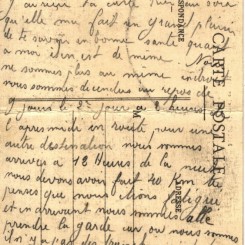 reçu ta carte hier au soir
qu'elle m'a fait un grand plaisir
de te savoir en bonne santé quant
a moi il en est de meme
ne sommes plus au meme endroit
nous sommes descendus au repos de
9 jours le 2e jours a 2 heures
l'apres midi en route pour une
autre destination nous sommes
arrivés a 12 heures de la nuit
nous devons avoir fait 40 Km tu
penses que nous étions fatigué
et en arrivant nous sommes allé
prendre la garde car ou nous sommes
il n'y a pas
CARTE POSTALE
CORRESPONDANCE
M
ADRESSE